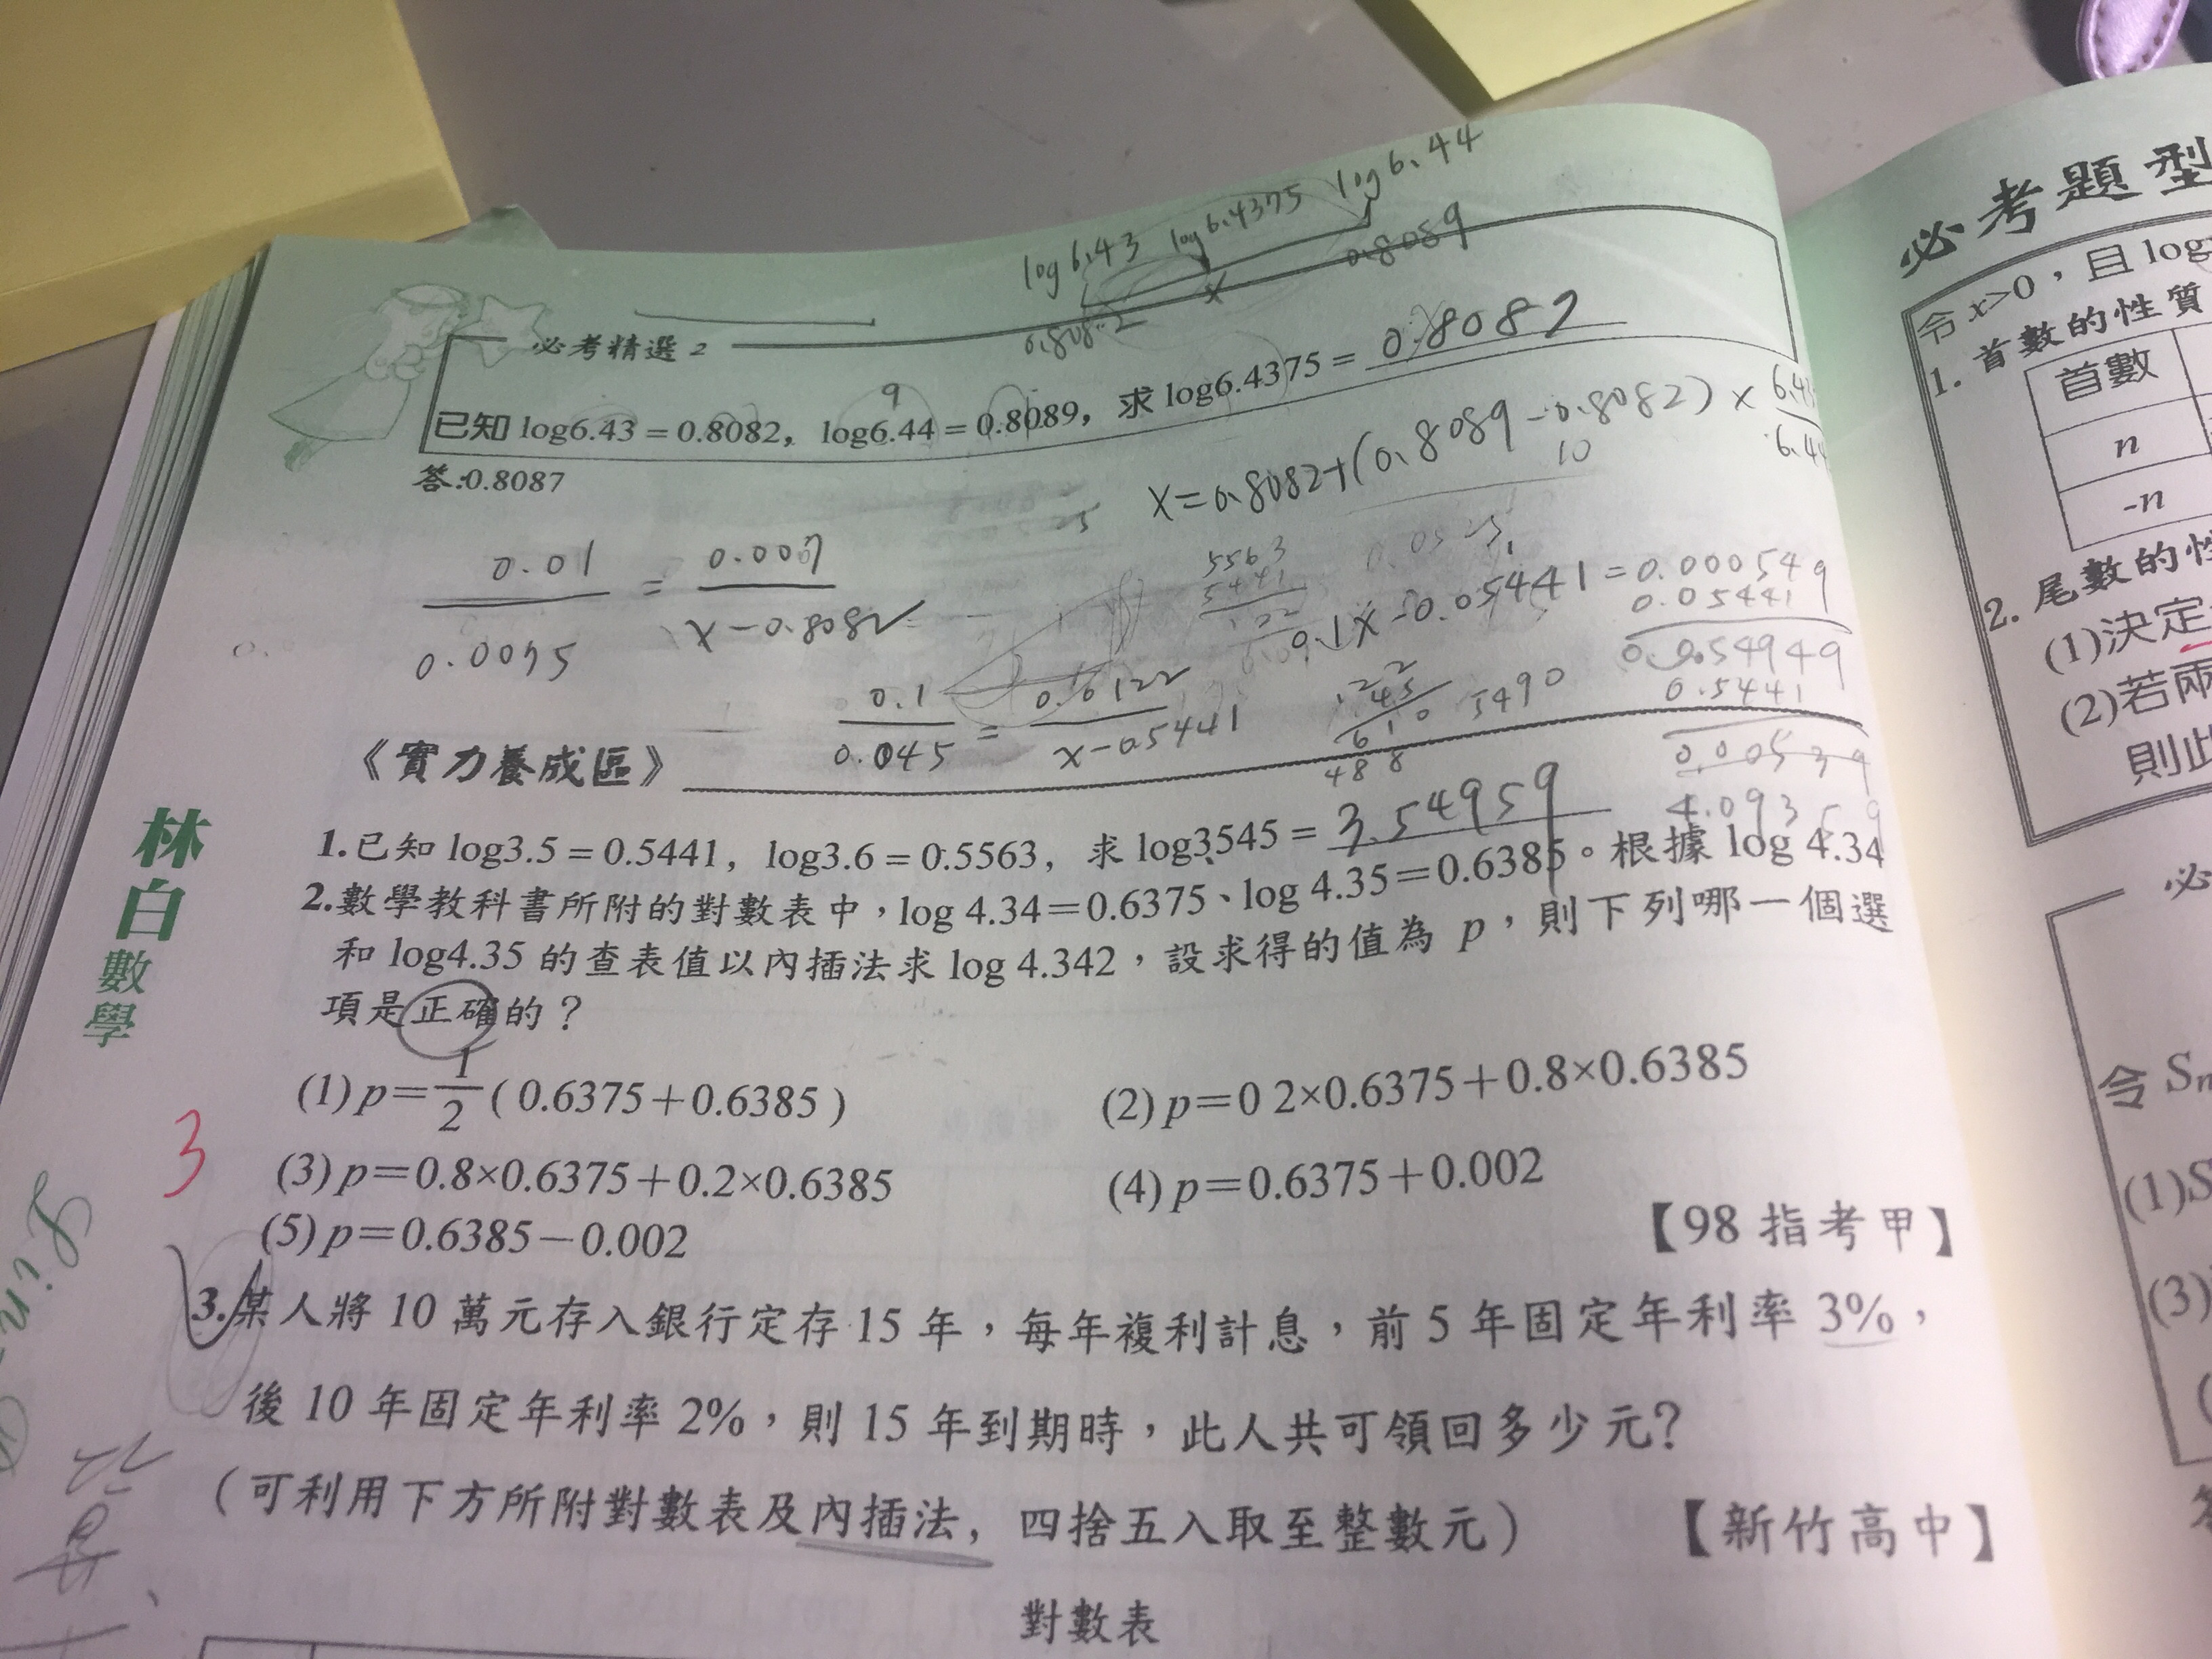 log6.43 log6.4375 log6.44
0.8082 x 0.8089
必考精選 2
9
已知 log6.43 = 0.8082, log6.44 = 0.8089, 求 log6.4375 = 0.8082
答:0.8087
x = 0.8082+(0.8089 - 0.8082) ×
10
0.01 = 0.0007
0.0075 x-0.8082
5563
5441
122
0.1x-0.05441 = 0.000549
0.05441
0.054949
0.5441
0.1 = 0.0122
0.045 x-0.5441
5490
610
488
0.00539
4.09359
《實力養成區》
1.已知 log3.5 = 0.5441, log3.6 = 0.5563, 求 log3545 = 3.54959
2.數學教科書所附的對數表中,log 4.34=0.6375、log 4.35=0.6385。根據 log 4.34
和 log4.35 的查表值以內插法求 log 4.342,設求得的值為 p,則下列哪一個選
項是正確的?
(1) p=1/2 ( 0.6375+0.6385 )
(2) p=0 2×0.6375+0.8×0.6385
(3) p=0.8×0.6375+0.2×0.6385
(4) p=0.6375+0.002
(5) p=0.6385-0.002
【98 指考甲】
3
3.某人將 10 萬元存入銀行定存 15 年,每年複利計息,前 5 年固定年利率 3%,
後 10 年固定年利率 2%,則 15 年到期時,此人共可領回多少元?
(可利用下方所附對數表及內插法, 四捨五入取至整數元)
【新竹高中】
對數表
林白數學
Lin
必考題型
令 x>0,且 log
1. 首數的性質
首數
n
-n
2. 尾數的性
(1)決定
(2)若兩
則此
必
令 Sn
(1)S
(3)